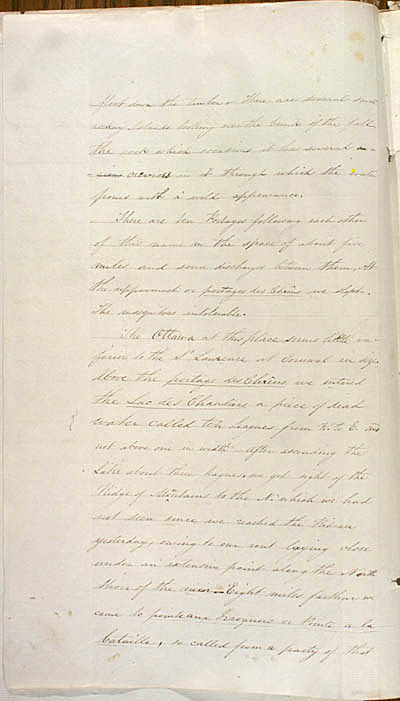 float down the timber. There are several small
rocky Islands looking over the brink of the fall
the rock which occasions it has several
crevices in it through which the water
pours with a wild appearance.
There are ten Portages following each other
of this name in the space of about five
miles and some discharges between them. At
the uppermost or portages des Chênes we slept.
The mosquitoes intolerable.
The Ottawa at this place seems little in-
ferior to the St Lawrence at Cornwall in size.
Above the portage des Chênes we entered
the Lac des Chaudière a piece of dead
water called ten leagues from W. to E. and
not above one in width. After ascending the
Lake about three leagues, we got sight of the
Ridge of Mountains to the N. which we had
not seen since we reached the River
yesterday, owing to our rout laying close
under an extensive point along the North
shore of the river. Eight miles further we
came to pointe aux Iroquois or Pointe a la
bataille, so called from a party of that